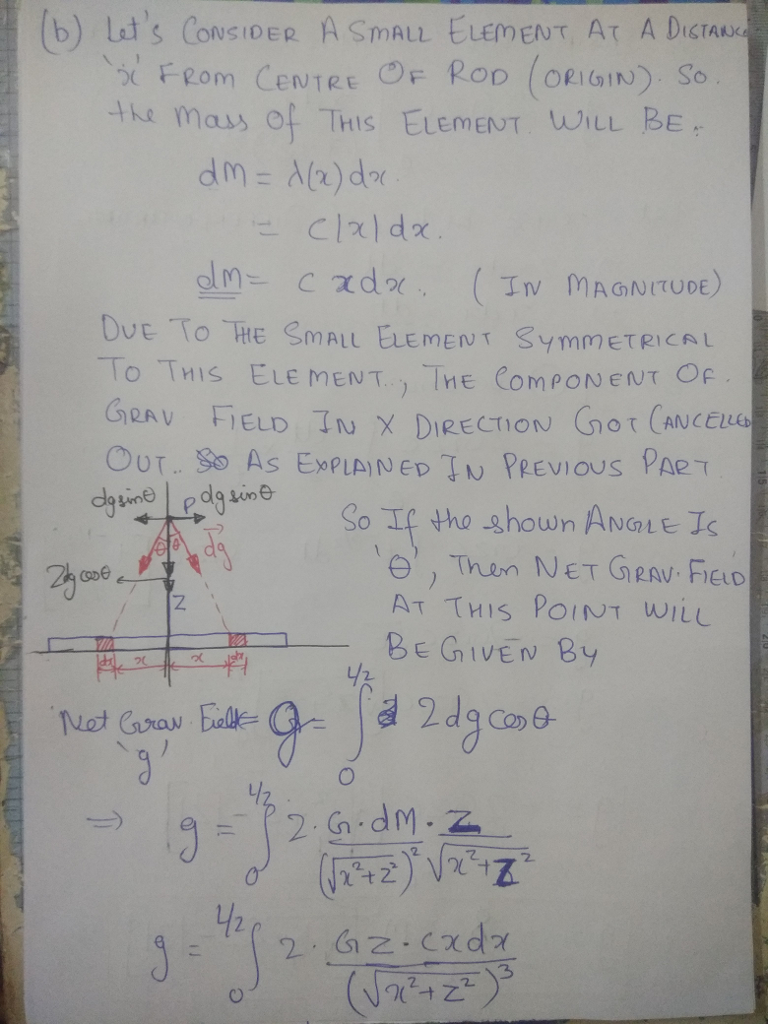 (b) Let's CONSIDER A SMALL ELEMENT AT A DISTANCE
'x' FROM CENTRE OF ROD (ORIGIN). SO
the Mass Of THIS ELEMENT WILL BE:
dM = λ(x) dx.
= C|x| dx.
dM = C x dx. ( IN MAGNITUDE)
DUE TO THE SMALL ELEMENT SYMMETRICAL
TO THIS ELEMENT., THE COMPONENT OF.
GRAV FIELD IN X DIRECTION GOT CANCELLED
OUT.. SO AS EXPLAINED IN PREVIOUS PART
dgsinθ P dgsinθ
θ θ
dg
2dgcosθ
Z
dx x x dx
So If the shown ANGLE Is
'θ', Then NET GRAV. FIELD
AT THIS POINT WILL
BE GIVEN BY
Net Grav. Field = g = ∫₀^(L/2) 2dg cosθ
'g'
⇒ g = ∫₀^(L/2) 2. G.dM . Z / (√x²+z²)² √x²+z²
g = ∫₀^(L/2) 2. GZ. Cxdx / (√x²+z²)³